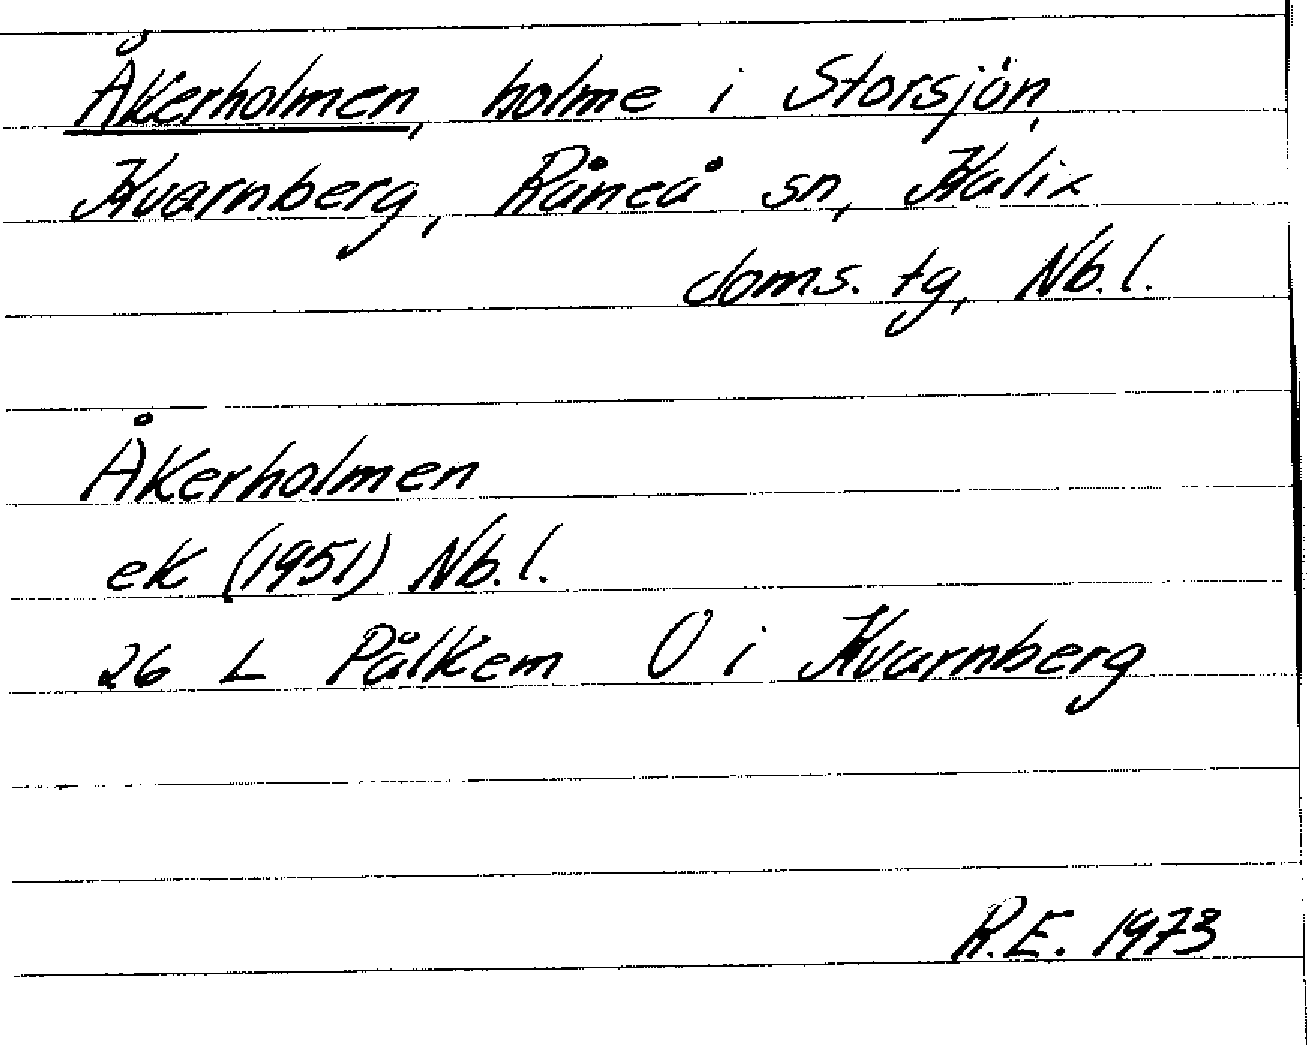 Åkerholmen, holme i Storsjön,
Kvarnberg, Råneå sn, Kalix
doms. tg, Nb.l.
Åkerholmen
ek (1951) Nb.l.
26 L Pålkem O i Kvarnberg
R.E. 1973